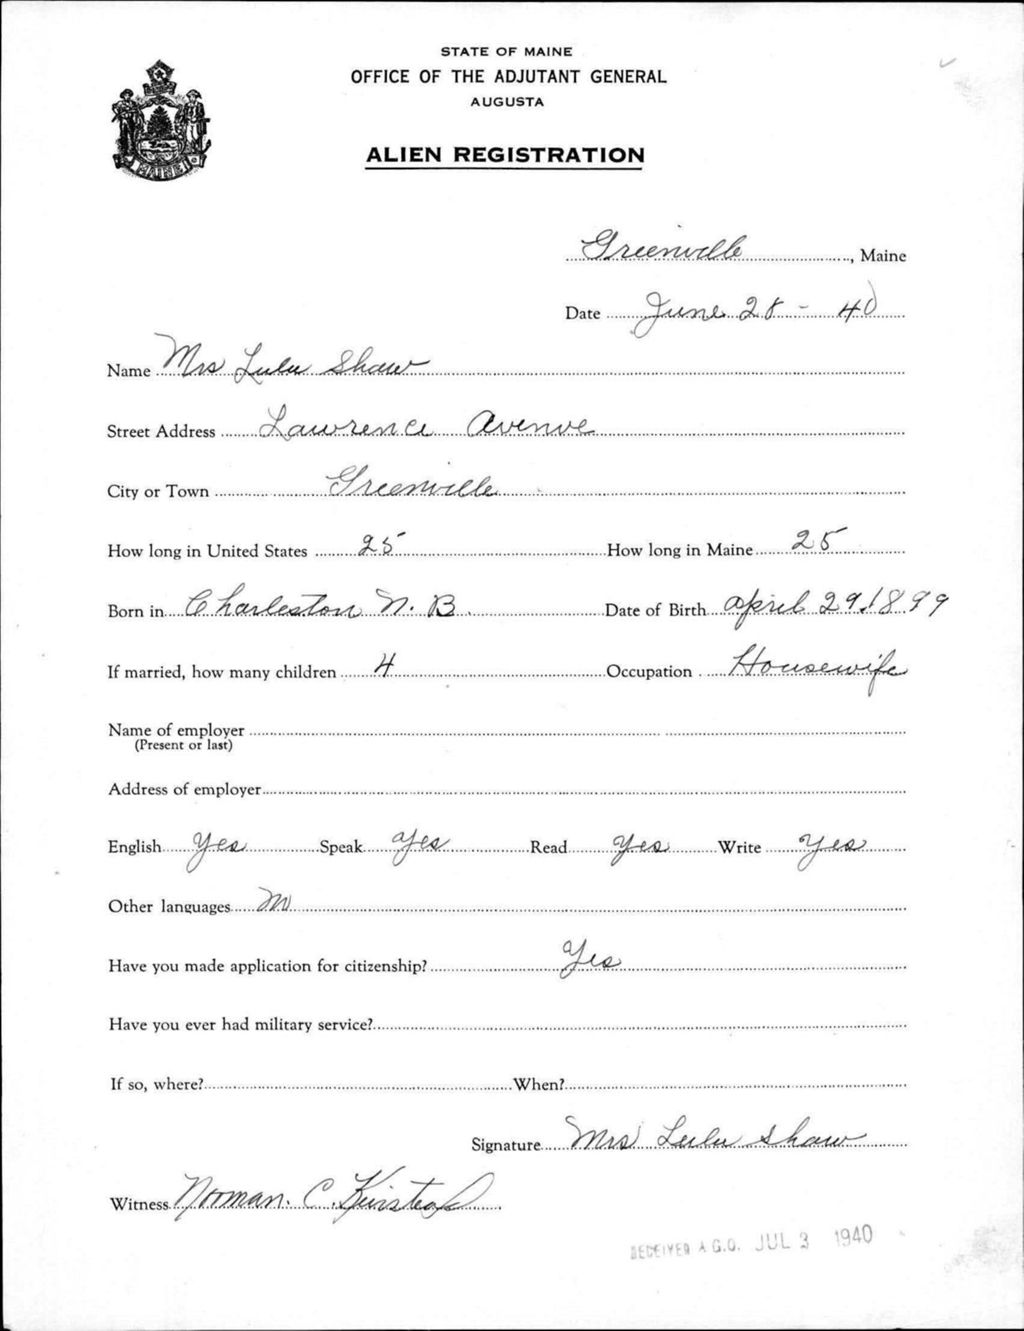 STATE OF MAINE
OFFICE OF THE ADJUTANT GENERAL
AUGUSTA
MAINE
ALIEN REGISTRATION
Greenville, Maine
Date June 28 - 40
Name Mrs Lulu Shaw
Street Address Lawrence Avenue
City or Town Greenville
How long in United States 25 How long in Maine 25
Born in Charleston N. B. Date of Birth April 29, 1899
If married, how many children 4 Occupation Housewife
Name of employer
(Present or last)
Address of employer
English Yes Speak Yes Read Yes Write Yes
Other languages
Have you made application for citizenship? Yes
Have you ever had military service?
If so, where? When?
Signature Mrs Lulu Shaw
Witness Norman C. Keirstead
RECEIVED A.G.O. JUL 3 1940